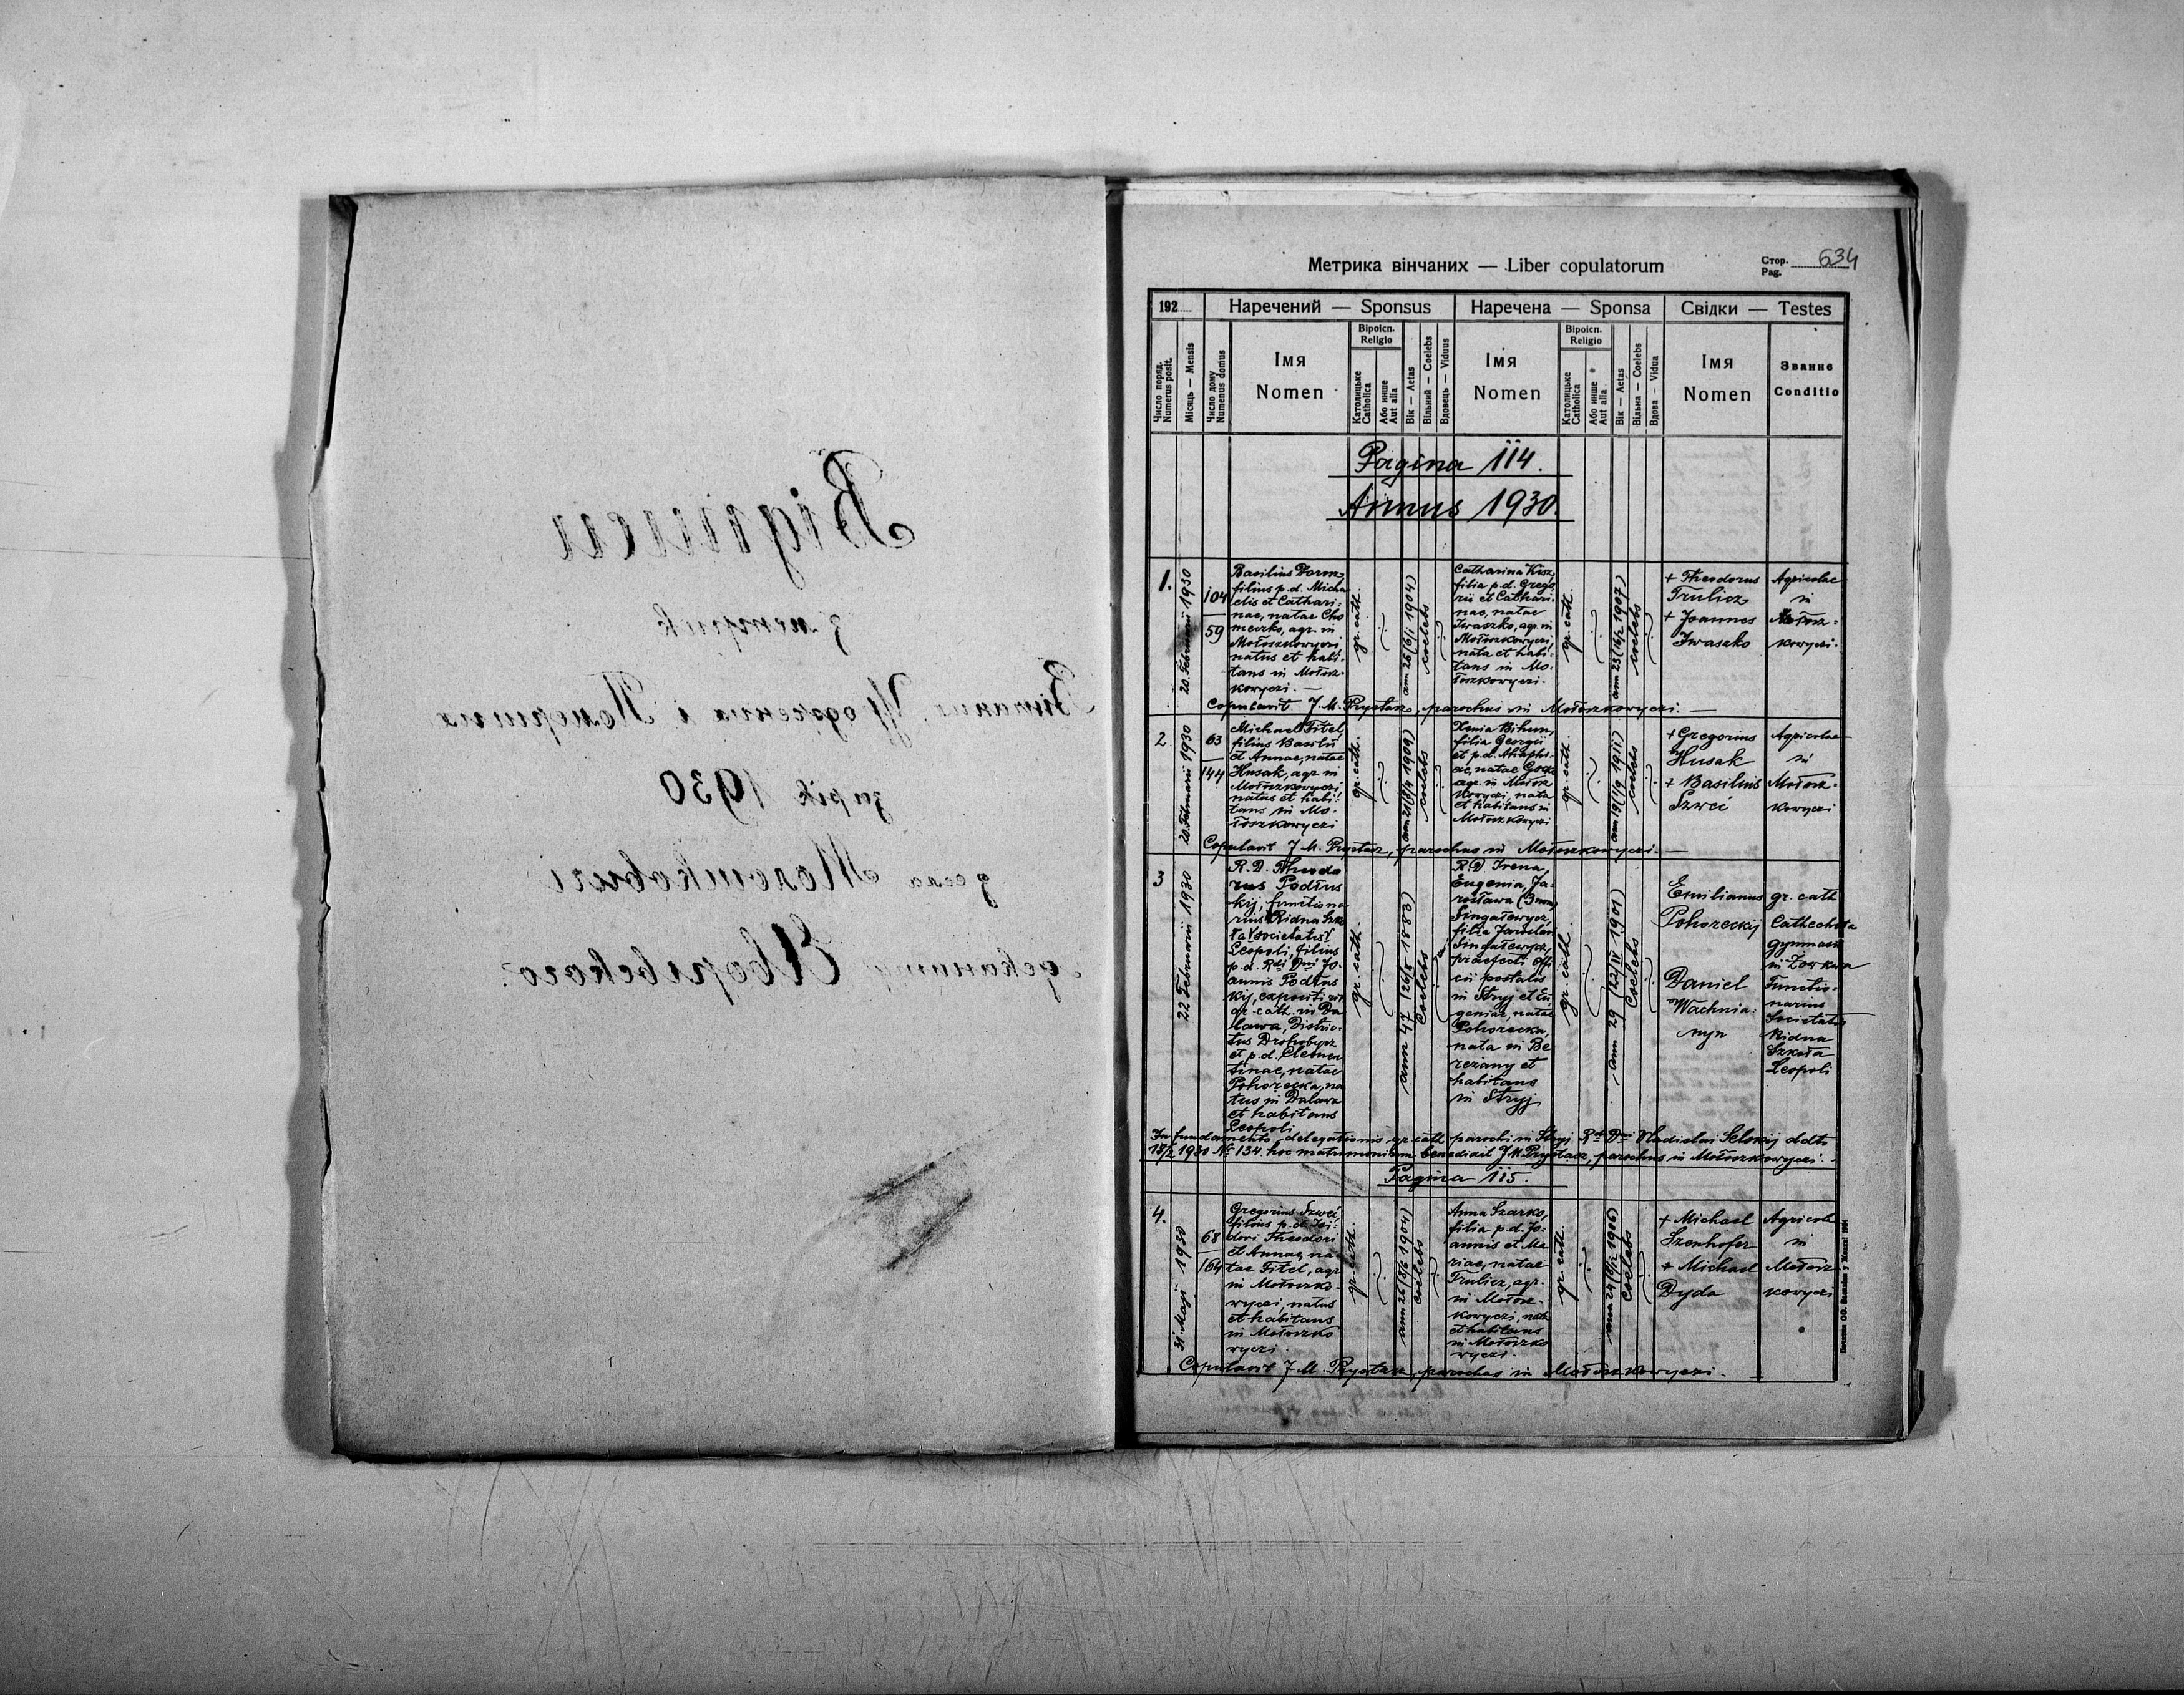 Відписи
з метрик
Вінчання, Уродження і Померших
за рік 1930
з села Молошковичі
деканату Яворівського.
Метрика вінчаних — Liber copulatorum
Стор. 634
Pag.
192
Наречений — Sponsus
Наречена — Sponsa
Свідки — Testes
Число поряд.
Numerus posit.
Місяць — Mensis
Число дому
Numerus domus
Імя
Nomen
Віроісп.
Religio
Католицьке
Catholica
Або инше
Aut alia
Вік — Aetas
Вільний — Coelebs
Вдовець — Viduus
Імя
Nomen
Віроісп.
Religio
Католицьке
Catholica
Або инше
Aut alia
Вік — Aetas
Вільна — Coelebs
Вдова — Vidua
Імя
Nomen
Званнє
Conditio
Pagina 114.
Annus 1930.
1.
20. Februarii 1930
104
59
Basilius
filius p. d. Micha
elis et Cathari-
nae, natae Cho
meczko, agr. in
Mołoszkowyczi
natus et habi-
tans in Mołosz-
kowyczi. —
gr. cath.
ann 26 (6/1 1904)
coelebs
Catharina Kisz
filia p. d. Grego
rii et Cathari-
nae, natae
Iwaszko, agr. in
Mołoszkowyczi,
nata et habi-
tans in Mo-
łoszkowyczi.
gr. cath.
coelebs
+ Theodorus
Trulicz
+ Joannes
Iwaszko
Agricolae
in
Mołosz-
kowyczi.
Copulavit J. M. Prystasz, parochus in Mołoszkowyczi. —
2
20 Februarii 1930
63
144
Michael Fitel,
filius Basilii
et Annae, natae
Husak, agr. in
Mołoszkowyczi
natus et habi-
tans in Mo-
łoszkowyczi
gr. cath.
coelebs
Xenia Bihun,
filia Georgii
et p. d.
natae
agr. in Mołosz
kowyczi, nata
et habitans in
Mołoszkowyczi
gr. cath.
coelebs
+ Gregorius
Husak
+ Basilius
Szweć
Agricolae
in
Mołosz-
kowyczi
Copulavit J. M. Prystasz, parochus in Mołoszkowyczi. —
3
22 Februarii 1930
R. D. Theodo
rus Podłus
kyj, functiona
rius Ridna Szko
ła societatis
Leopoli, filius
p. d. Rdi Dni Jo-
annis Podłus
kyj,
gr. cath. in Da
lawa, Distric-
tus Drohobycz
et p. d. Clemen
tinae, natae
Pohorecka, na
tus in Dalawa
et habitans
Leopoli
gr. cath.
ann 47 (26/ 1883)
coelebs
R. D. Irena,
Eugenia, Ja-
rosława
Singalewycz,
filia Jaroslai
Singalewycz,
praefecti offi
cii postalis
in Stryj et Eu
geniae, natae
Pohorecka,
nata in Be
rezany et
habitans
in Stryj
gr. cath.
ann 29 (22/IV 1901)
coelebs
Emilianus
Pohoreckij
Daniel
Wachnia-
nyn
gr. cath
Catechista
gymnasii
in Żorkwa
Functio-
narius
Societatis
Ridna
Szkoła
Leopoli
In fundamento delegationis gr. cath. parochi in Stryj Rdi Dni Vladislai ddto
18/2 1930 № 134 hoc matrimonium benedixit J. M. Prystasz, parochus in Mołoszkowyczi.
Pagina 115.
4.
31 Maji 1930
68
164
Gregorius Szweć
filius p. d. Isi-
dori Theodori
et Annae, na
tae Fitel, agr.
in Mołoszko-
wyczi, natus
et habitans
in Mołoszko
wyczi.
gr. cath.
ann 26 (8/6 1904)
coelebs
Anna Szarko,
filia p. d. Jo-
annis et Ma
riae, natae
Trulicz, agr.
in Mołosz-
kowyczi, nata
et habitans
in Mołoszko
wyczi.
gr. cath.
coelebs
+ Michael
Szenhofer
+ Michael
Dyda
Agricolae
in
Mołosz
kowyczi
Copulavit J. M. Prystasz, parochus in Mołoszkowyczi.